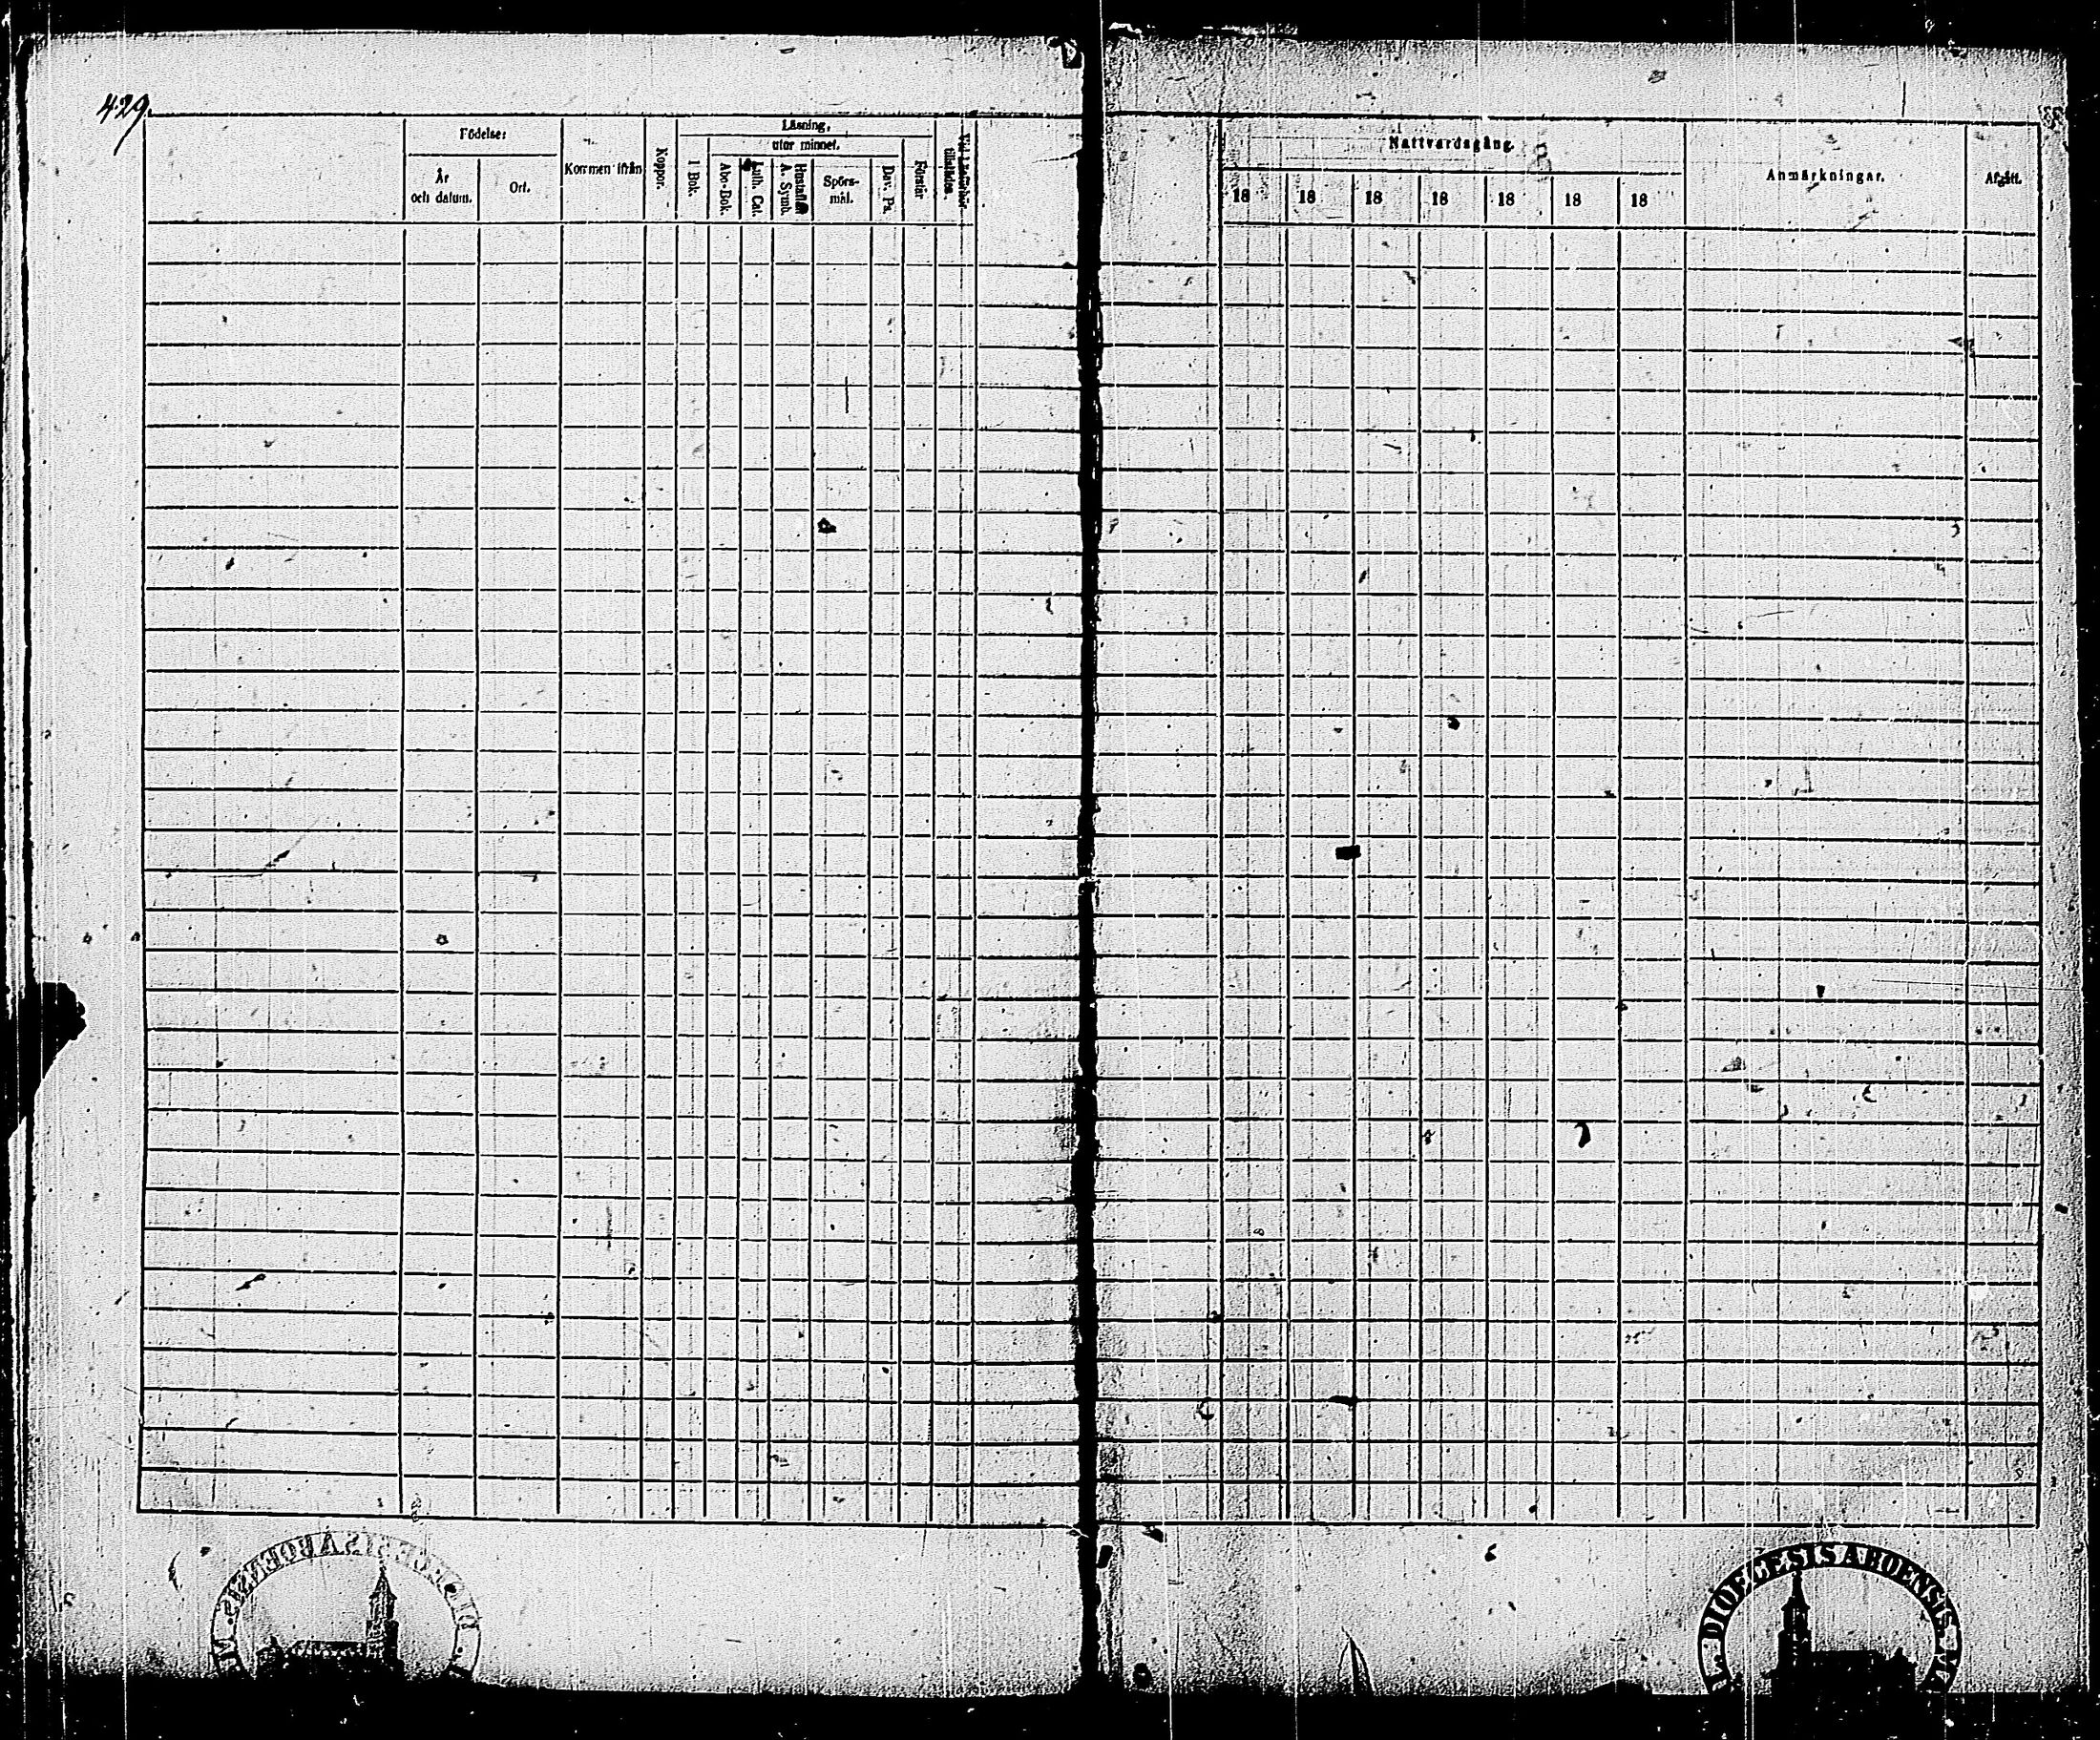 429.
Födelse:
År
och datum.
Ort.
Kommen ifrån
Koppor.
Läsning,
utur minnet.
I Bok.
Abc-Bok.
Luth. Cat.
Hustaflan
A. Symb.
Spörs-
mål.
Dav. Ps.
Förstår
Nattvardsgång.
18 18 18 18 18 18 18
Anmärkningar.
Afgått.
DIOECESIS ABOENSIS
DIOECESIS ABOENSIS